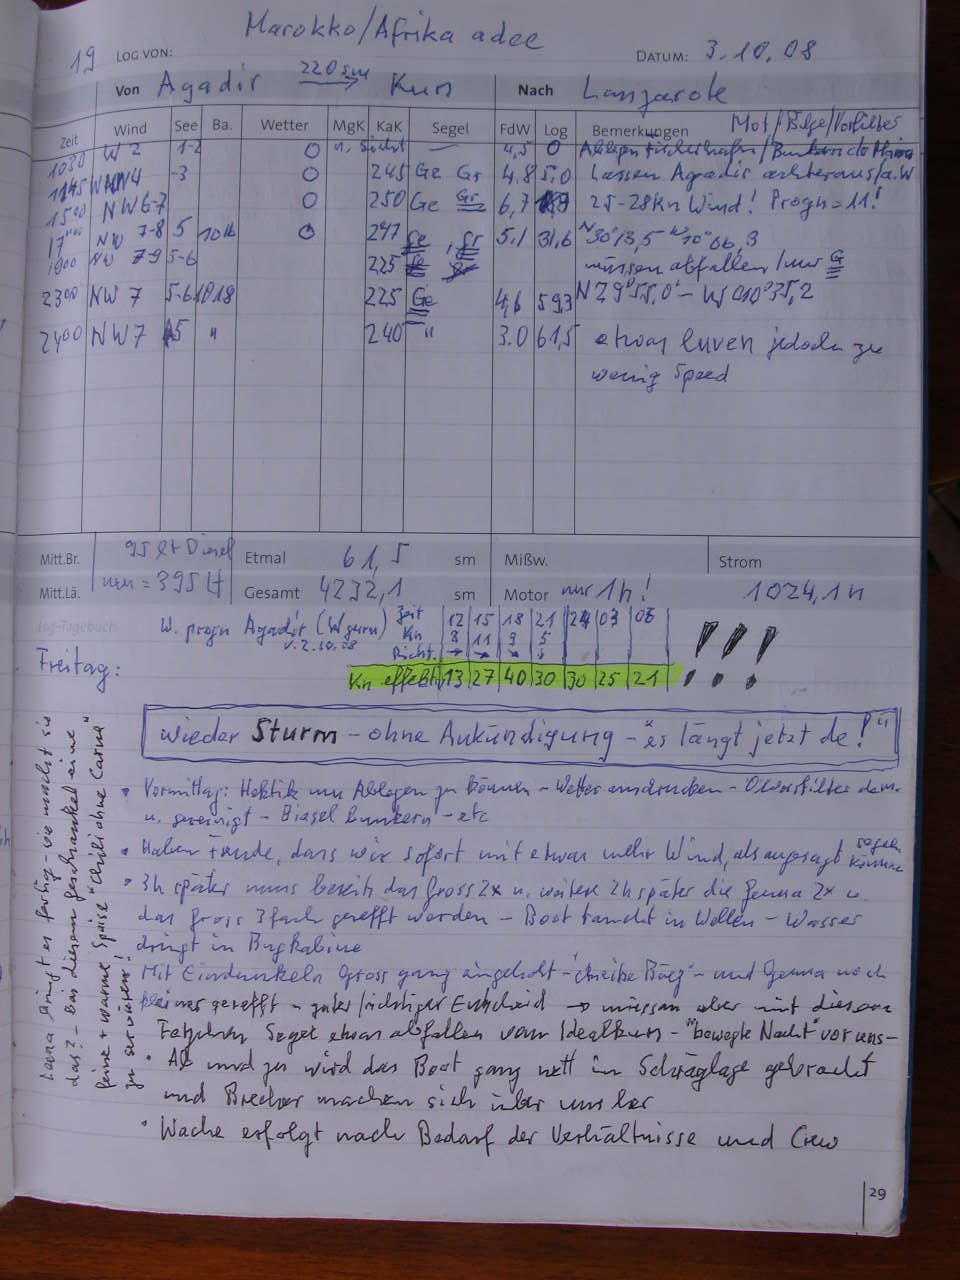 Marokko/Afrika adee
19 LOG VON: DATUM: 3.10.08
Von Agadir 220sm Kurs Nach Lanzarote
Zeit Wind See Ba. Wetter MgK KaK Segel FdW Log Bemerkungen Mot/Bilge/Vorfilter
1030 W 2 1-2 O n. Sicht — 4,5 0 Ablegen Fischerhafen/Bunkern
1145 4 -3 O 245 Ge Gr 4,8 5,0 Lassen Agadir achteraus
1500 NW6-7 O 250 Ge Gr 6,7 25-28Kn Wind! Progn=11!
17 NW 7-8 5 1016 O 247 Ge, Gr 5,1 31,6 N30°13,5 W10°06,3
NW 7-9 5-6 225 müssen abfallen/nur G
2300 NW 7 5-6 1018 225 Ge 4,6 59,3 N29°55,0'- W010°35,2
2400 NW7 5 " 240 " 3.0 61,5 etwas luven jedoch zu
wenig Speed
Mitt.Br. 95 lt Diesel Etmal 61,5 sm Mißw. Strom
Mitt.Lä. neu = 395 lt Gesamt 4232,1 sm Motor nur 1h! 1024,1h
Log-Tagebuch W. progn Agadir (Wguru) Zeit 12 15 18 21 24 03 06
v. 2.10.08 Kn 8 11 9 5
Richt. → → ↘ ↓ !!!
Freitag: Kn effekt. 13 27 40 30 30 25 21
wieder Sturm - ohne Ankündigung - "es längt jetzt de!"
• Vormittag: Hektik um Ablegen zu können - Wetter ausdrucken - Ölvorfilter dem.
u. gereinigt - Diesel bunkern - etc
• Haben Freude, dass wir sofort mit etwas mehr Wind, als angesagt segeln können
• 3h später muss bereits das Gross 2x u. weitere 2h später die Genua 2x u.
das Gross 3fach gerefft werden - Boot taucht in Wellen - Wasser
dringt in Bugkabine
Mit Eindunkeln Gross ganz eingeholt - und Genua noch
kleiner gerefft - guter/richtiger Entscheid → müssen aber mit diesem
Segel etwas abfallen vom Idealkurs - "bewegte Nacht" vor uns -
• Ab und zu wird das Boot ganz nett in Schräglage gebracht
und Brecher machen sich über uns her
• Wache erfolgt nach Bedarf der Verhältnisse und Crew
bringt es fertig - wie macht sie
das? - Bei diesem Geschaukel eine
feine + warme Speise "Chili ohne Carne"
zu servieren!
29